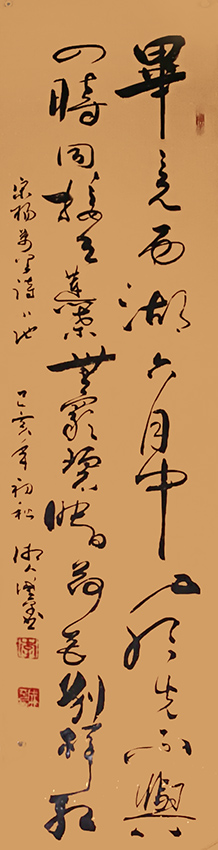 畢竟西湖六月中风光不與
四時同接天蓮葉無窮碧映日荷花别樣红
宋楊萬里詩 己亥年初秋